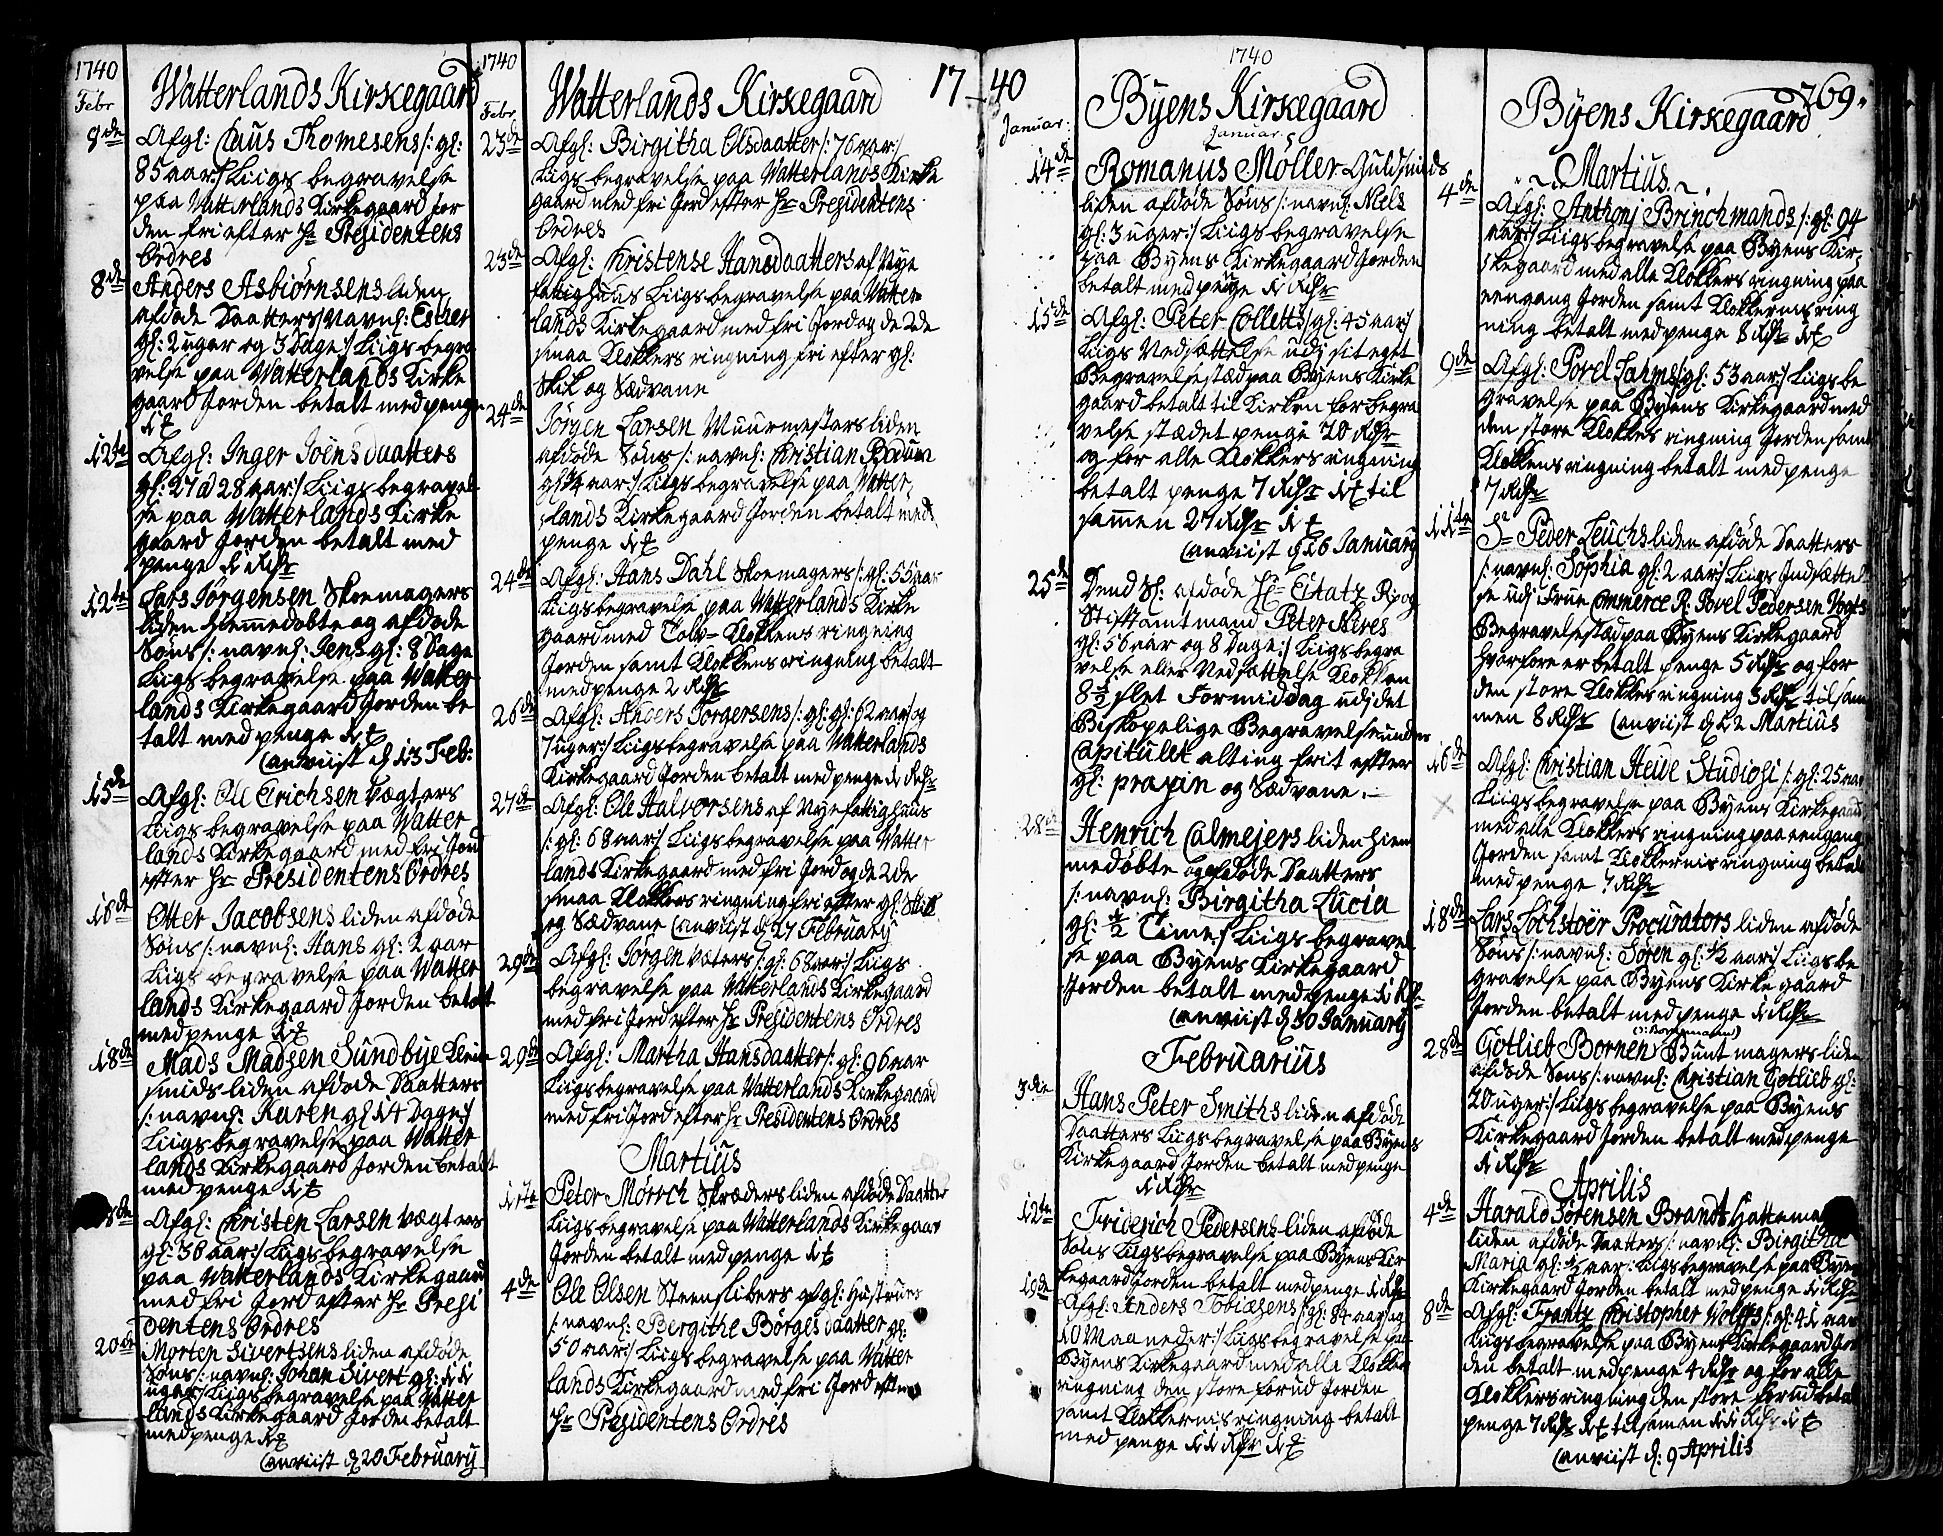 1740
Febr
Watterlands Kirkegaard
8de
Afgl: Claus Thomesens /: gl:
85 aar:/ Liigs begravelse
paa Watterlands Kirkegaard Jor
den fri efter Hr Presidentens
Ordres
8de
Anders Asbiørnsens liden
afdøde Daatters /: Navnl: Esther
gl: 2 uger og 3 Dage:/ Liigs begra
velse paa Watterlands Kirke
gaard Jorden betalt med penge
1 ₰
12te
Afgl: Inger Joensdaatters
gl: 27 a 28 aar:/ Liigs begravel
se paa Watterlands Kirke
gaard Jorden betalt med
penge 1 Rdr
12te
Lars Jørgensen Skoemagers
liden hiemmedøbte og afdøde
Søns /: navnl: Jens gl: 8 Dage
Liigs begravelse paa Watter
lands Kirkegaard Jorden be
talt med penge 1 ₰
Anviist d 13 Feb:
15de
Afgl: Ole Erichsen Vægters
Liigs begravelse paa Watter
lands Kirkegaard med fri Jord
efter Hr Presidentens Ordres
16de
Otter Jacobsens liden afdøde
Søns /: navnl: Hans gl: 2 aar
Liigs begravelse paa Watter
lands Kirkegaard Jorden betalt
med penge 1 ₰
18de
Mads Madsen Sundbye Klein
smids liden afdøde Daatters
/: navnl: Karen gl 14 Dage:/
Liigs begravelse paa Watter
lands Kirkegaard Jorden betalt
med penge 1 ₰
18de
Afgl: Christen Larsen Vægters
gl: 36 aar:/ Liigs begravelse
paa Watterlands Kirkegaard
med fri Jord efter Hr Presi
dentens Ordres
20de
Morten Sivertsens liden afdøde
Søns /: navnl: Johan Sivert gl: 11
uger:/ Liigs begravelse paa Watter
lands Kirkegaard Jorden betalt
med penge 1 ₰
Anviist d 20 February
1740
Febr
Watterlands Kirkegaard
17
23de
Afgl: Birgitha Olsdaatter /: 76 aar:/
Liigs begravelse paa Watterlands Kirke
gaard med fri Jord efter Hr Presidentens
Ordres
23de
Afgl: Christense Hansdaatters af Nye
fattighuus Liigs begravelse paa Watter
lands Kirkegaard med fri Jord og de 2de
smaa Klokkers ringning fri efter gl:
Skik og Sædvane
24de
Jørgen Larsen Muurmesters liden
afdøde Søns /: navnl: Christian Bodum
gl: 4 aar:/ Liigs begravelse paa Watter
lands Kirkegaard Jorden betalt med
penge 1 ₰
24de
Afgl: Hans Dahl Skoemagers /: gl: 55 aar
Liigs begravelse paa Watterlands Kirke
gaard med Tolv-Klokkens ringning
Jorden samt Klokkens ringning betalt
med penge 2 Rdr
26de
Afgl: Anders Torgersens /: gl: gl: 62 aar og
7 uger:/ Liigs begravelse paa Watterlands
Kirkegaard Jorden betalt med penge 1 Rdr
27de
Afgl: Ole Halvorsens af Nye fattighuus
/: gl: 68 aar:/ Liigs begravelse paa Watter
lands Kirkegaard med fri Jord og de 2de
smaa Klokkers ringning fri efter gl: Skik
og Sædvane Anviist d 27 February
29de
Afgl: Jørgen Væters /: gl: 68 aar:/ Liigs
begravelse paa Watterlands Kirkegaard
med fri Jord efter Hr Presidentens Ordres
29de
Afgl: Martha Hansdaatter /: gl: 96 aar
Liigs begravelse paa Watterlands Kirkegaard
med fri Jord efter Hr Presidentens Ordres
Martius
1ste
Peter Mørsch Skræders liden afdøde Daatter
Liigs begravelse paa Watterlands Kirkegaar
Jorden betalt med penge 1 ₰
4de
Ole Olsen Steenslibers afgl: Hustrues
/: navnl: Bergithe Børgesdaatter gl:
50 aar:/ Liigs begravelse paa Watter
lands Kirkegaard med fri Jord efter
Hr Presidentens Ordres
40
1740
Januar:
Byens Kirkegaard
Januar:
14de
Romanus Møller Guldsmids
liden afdøde Søns /: navnl: Niels
gl: 3 uger:/ Liigs begravelse
paa Byens Kirkegaard Jorden
betalt med penge 1 Rdr
15de
Afgl: Peter Colletts /: gl: 45 aar:/
Liigs Nedsættelse udj sit eget
Begravelsestæd paa Byens Kirke
gaard betalt til Kirken for begra
velse stædet penge 20 Rdr
og for alle Klokkers ringning
betalt penge 7 Rdr 1 ₰ til
sammen 27 Rdr 1 ₰
Anviist d 16 January
25de
Dend Sl: afdøde Hr Etatz R: og
Stiftamtmand Peter Neves
gl: 56 aar og 8 Dage:/ Liigs begra
velse eller Nedsættelse Klokken
8 ½ slet Formiddag udj det
Biskopelige Begravelse under
Capitulet alting frit efter
gl: praxin og Sædvane.
28de
Henrich Calmejers liden hiem
medøbte og afdøde Daatters
/: navnl: Birgitha Lucia
gl: ½ Time:/ Liigs begravel
se paa Byens Kirkegaard
Jorden betalt med penge 1 Rdr
Anviist d 30 January
Februarius
3die
Hans Peter Smiths liden afdøde
Daatters Liigs begravelse paa Byens
Kirkegaard Jorden betalt med penge
1 Rdr
12te
Friderich Pedersens liden afdøde
Søns Liigs begravelse paa Byens Kir
kegaard Jorden betalt med penge 1 Rdr
19de
Afgl: Anders Tobiæsens /: gl: 84 aar og
10 Maaneder:/ Liigs begravelse paa
Byens Kirkegaard med alle Klokkers
ringning den store forud Jorden
samt Klokkernis ringning betalt
med penge 11 Rdr 1 ₰
769.
Byens Kirkegaard
Martius.
4de
Afgl: Anthonj Brinchmands /: gl: 94
aar:/ Liigs begravelse paa Byens Kir
kegaard med alle Klokkers ringning paa
eengang Jorden samt Klokkernis ring
ning betalt med penge 8 Rdr 1 ₰
9de
Afgl: Povel Lahms /: gl: 53 aar:/ Liigs be
gravelse paa Byens Kirkegaard med
den store Klokkes ringning Jorden samt
Klokkens ringning betalt med penge
7 Rdr
11te
Sr Peder Leuchs liden afdøde Daatters
/: navnl: Sophia gl: 2 aar:/ Liigs Indsættel
se udj Frue Commerce R: Povel Pedersen Vogts
Begravelsestæd paa Byens Kirkegaard
hvorfore er betalt penge 5 Rdr og for
den store Klokkes ringning 3 Rdr tilsam
men 8 Rdr Anviist d 12 Martius
16de
Afgl: Christian Heide Studiosi /: gl: 25 aar
Liigs begravelse paa Byens Kirkegaard
med alle Klokkers ringning paa eengang
Jorden samt Klokkernis ringning betalt
med penge 7 Rdr
18de
Lars Lochstøer Procurators liden afdøde
Søns /: navnl: Søren gl: ½ aar:/ Liigs be
gravelse paa Byens Kirke gaard
Jorden betalt med penge 1 Rdr
28de
Gotlieb Bornen Buntmagers liden
afdøde Søns /: navnl: Christian Gotlieb gl:
20 uger:/ Liigs begravelse paa Byens
Kirkegaard Jorden betalt med penge
1 Rdr
Aprilis
4de
Harald Sørensen Brandt Hattema
liden afdøde Daatters /: navnl: Birgitha
Maria gl: ½ aar: Liigs begravelse paa Byens
Kirkegaard Jorden betalt med penge 1 Rdr
8de
Afgl: Frantz Christopher Wolffs /: gl: 41 aar
Liigs begravelse paa Byens Kirkegaard Jor
den betalt med penge 4 Rdr og for alle
Klokkers ringning den store forud betalt
penge 7 Rdr 1 ₰ tilsamen 11 Rdr 1 ₰
Anviist d: 9 Aprilis